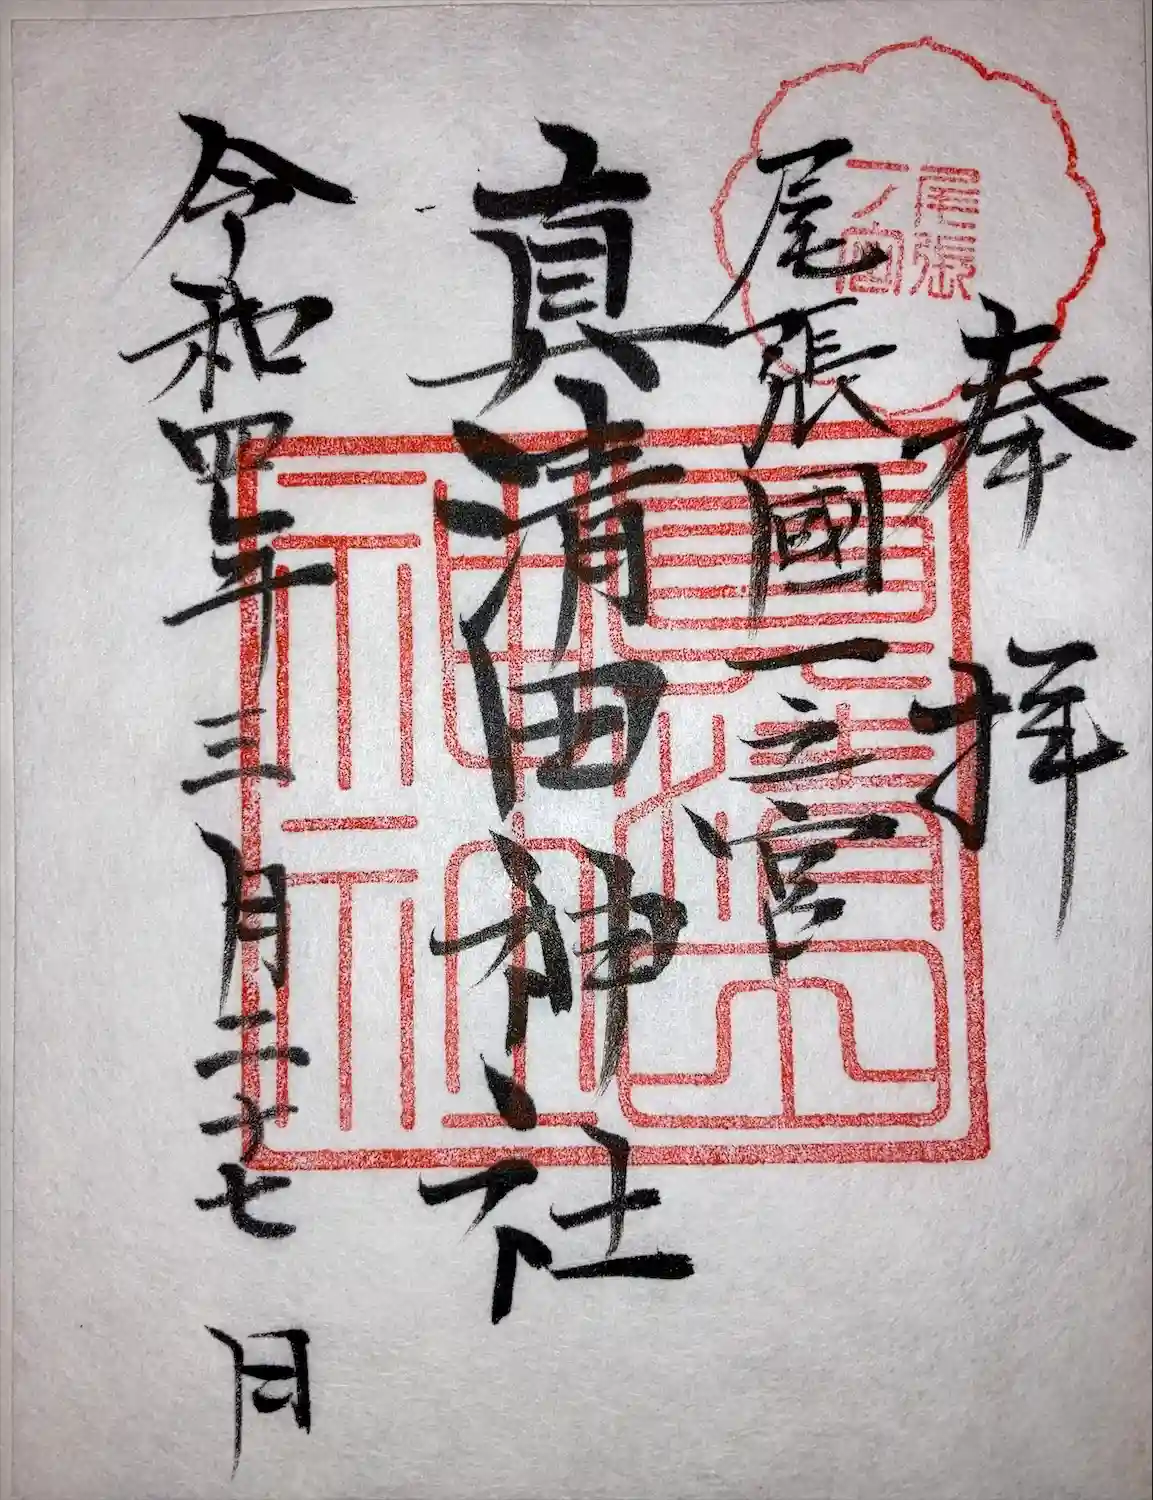 奉拝
尾張國一之宮
真清田神社
令和四年三月二十七日
尾張
一ノ宮